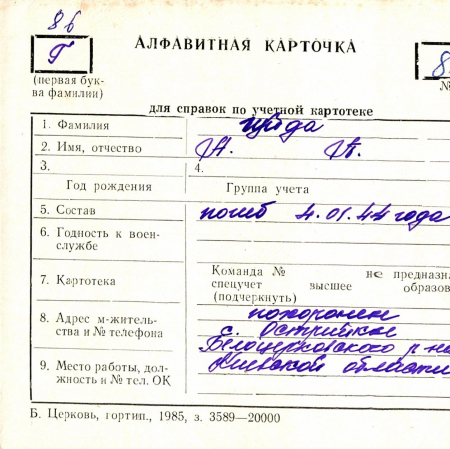 86
Г
АЛФАВИТНАЯ КАРТОЧКА
8
(первая бук-
ва фамилии)
№
для справок по учетной картотеке
1. Фамилия
2. Имя, отчество А. П.
3. 4.
Год рождения Группа учета
5. Состав погиб 4.01.44 года
6. Годность к воен-
службе
7. Картотека Команда № не предназна
спецучет высшее образов
(подчеркнуть)
8. Адрес м-житель-
ства и № телефона похоронен
с. Острийкое
Белоцерковского р-на
9. Место работы, дол-
жность и № тел. ОК Киевской области
Б. Церковь, гортип., 1985, з. 3589—20000